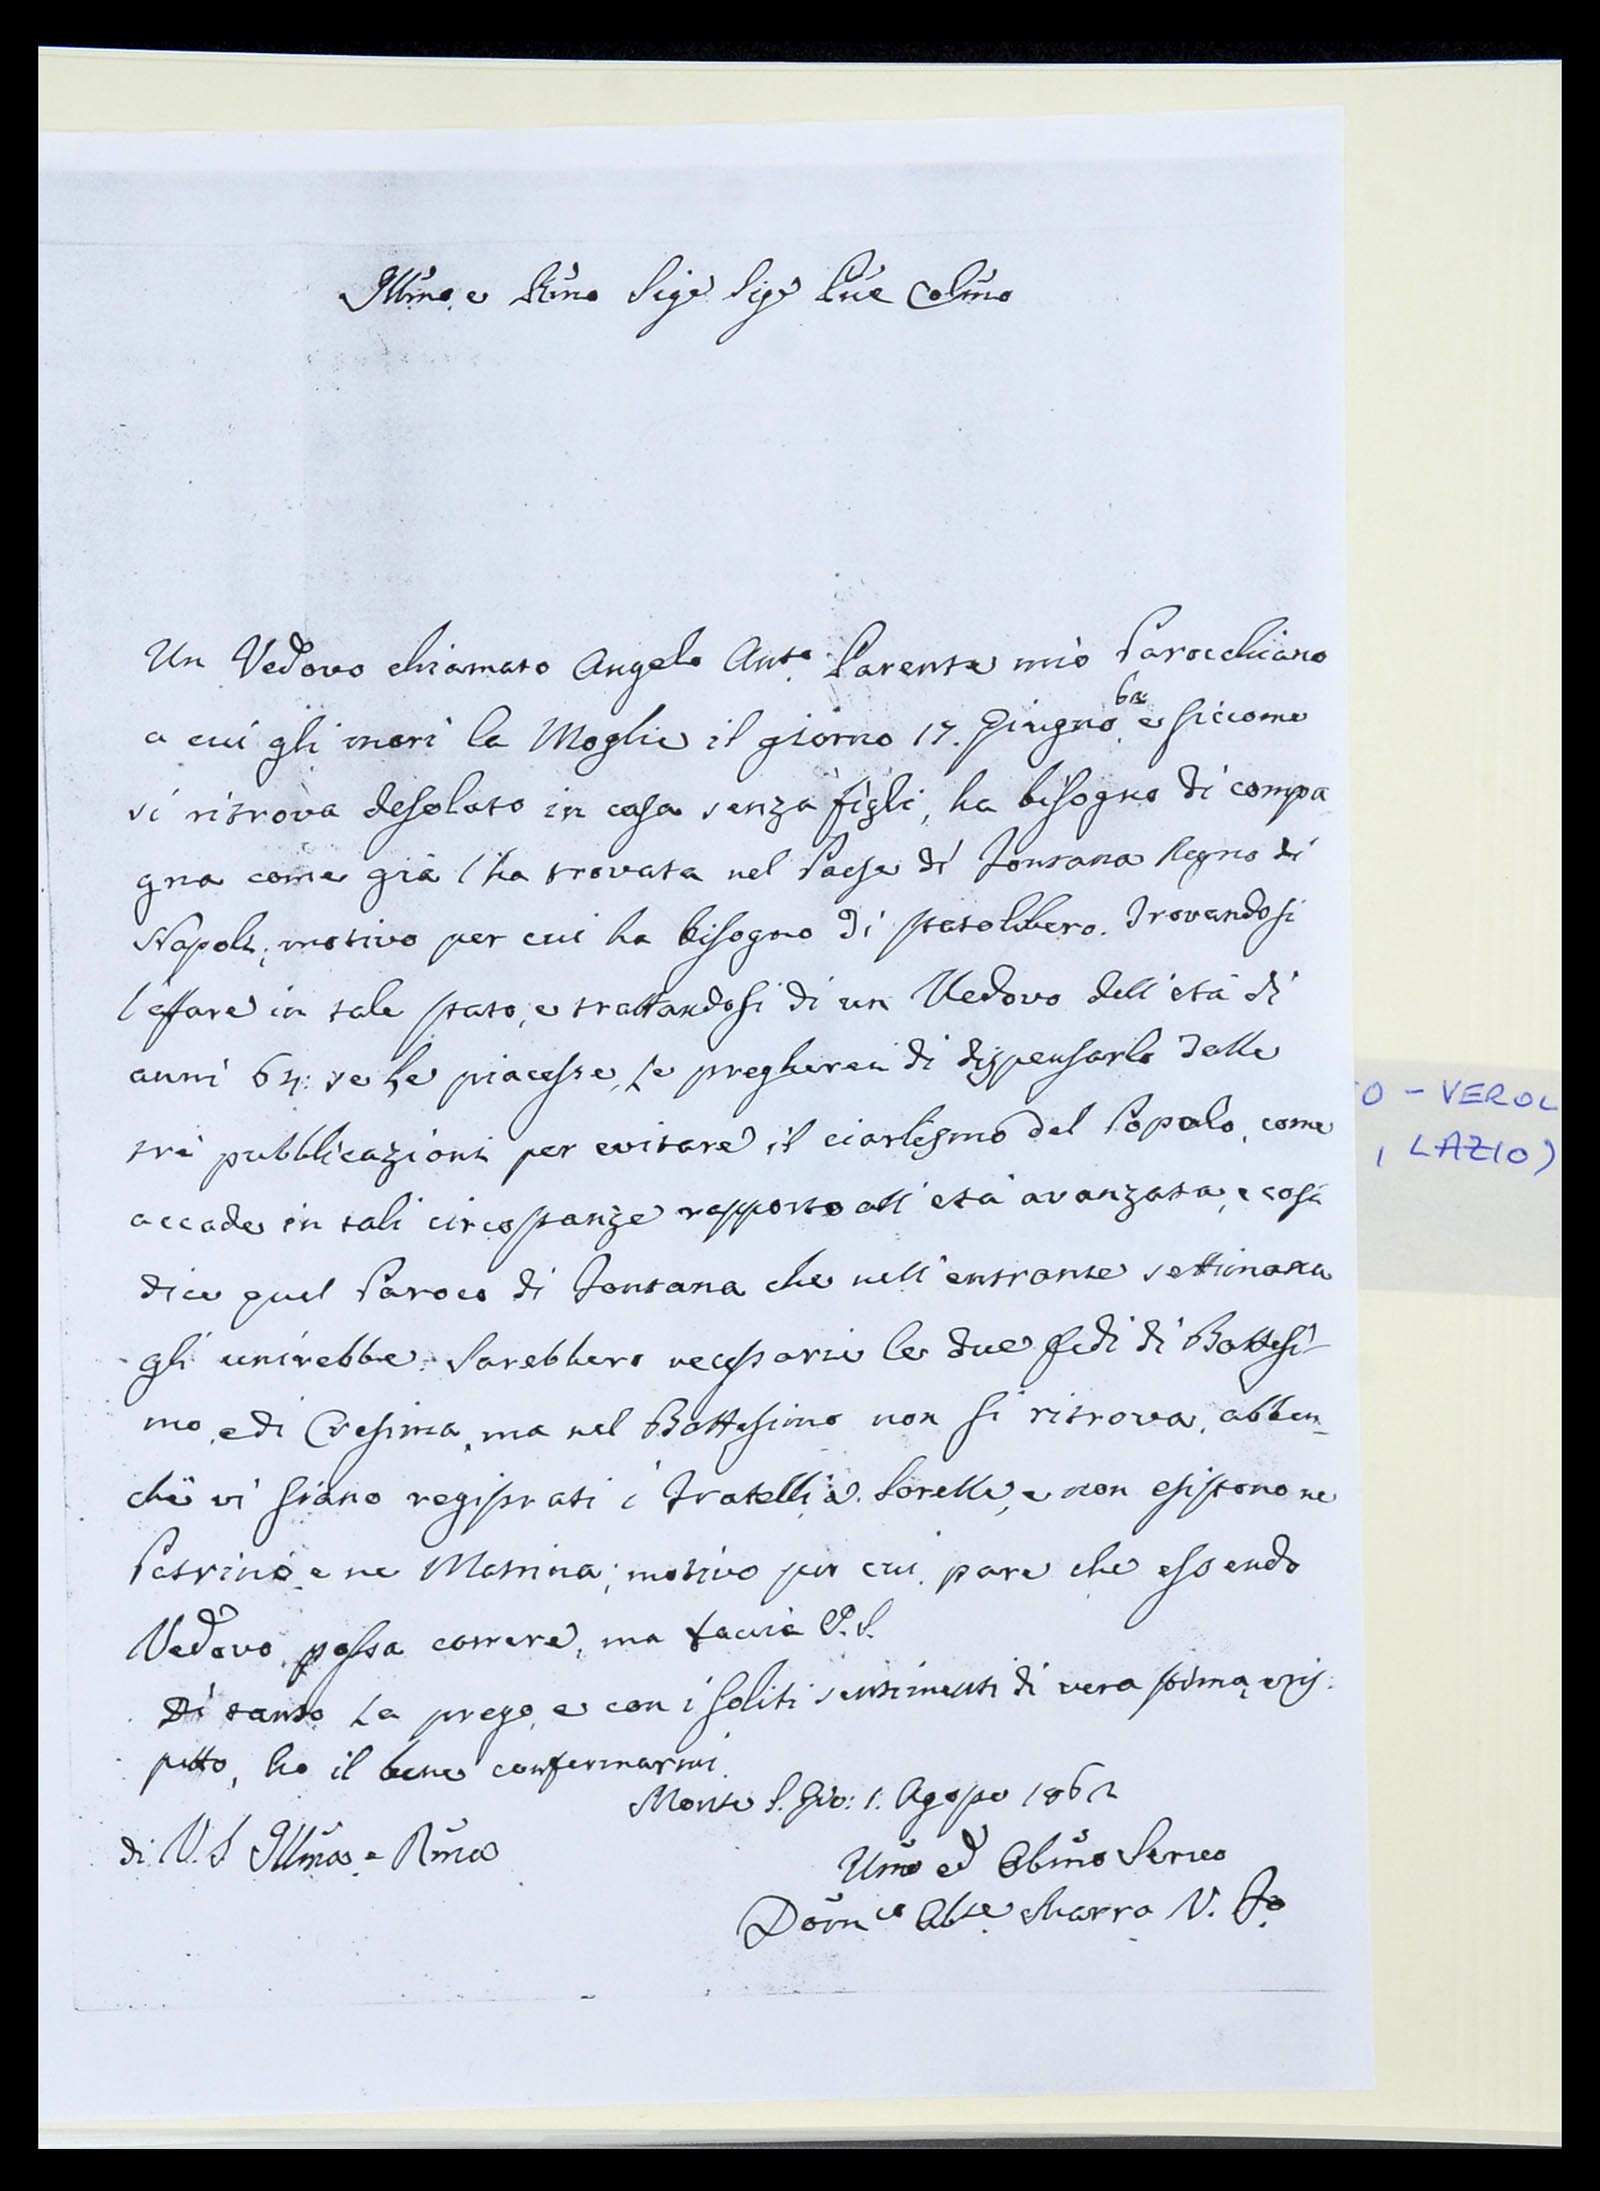 Illmo. e Rmo Sigr Sigr Pne Colmo
Un Vedovo chiamato Angelo Anto. Parente mio Parocchiano
a cui gli morì la Moglie il giorno 17. Giugno e siccome
si ritrova desolato in casa senza figli, ha bisogno di compa
gna come già l'ha trovata nel Paese di Fontana Regno di
Napoli; motivo per cui ha bisogno di stato libero. Trovandosi
l'affare in tale stato, e trattandosi di un Vedovo dell'età di
anni 64: se Le piacesse, Le pregherei di dispensarlo dalle
tre pubblicazioni per evitare il ciarlismo del Popolo, come
accade in tali circostanze rapporto all'età avanzata, e così
dice quel Paroco di Fontana che nell'entrante settimana
gli unirebbe. Sarebbero necessarie le due fedi di Battesi-
mo, e di Cresima, ma nel Battesimo non si ritrova, abben-
chè vi siano registrati i Fratelli, e Sorelle, e non esistono ne
Patrino, e ne Matrina; motivo per cui pare che essendo
Vedovo possa correre, ma faccia
Di tanto La prego, e con i soliti sentimenti di vera stima, e ris:
petto, ho il bene confermarmi
Monte S. Gio: 1. Agosto 1862
di V. S. Illma e Rma
Umo ed Obbmo Servo
Domco Abte Sbarra V. Fo.
O - VEROL
, LAZIO)